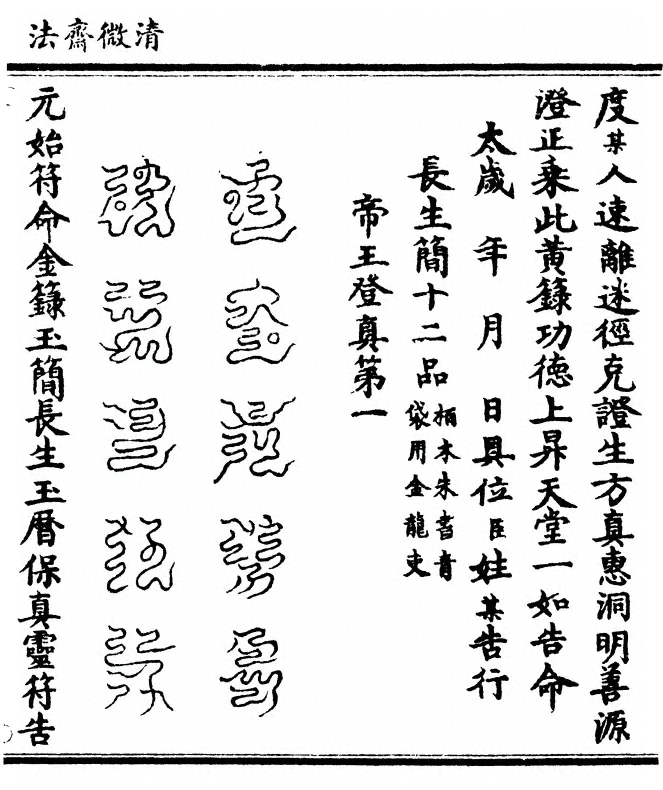 清微齋法
度某人速離迷徑克證生方真惠洞明善源
澄正乘此黃籙功德上昇天堂一如告命
太歲 年 月 日具位臣姓某告行
長生簡十二品栢木朱書青袋用金龍吏
帝王登真第一
元始符命金籙玉簡長生玉曆保真靈符告